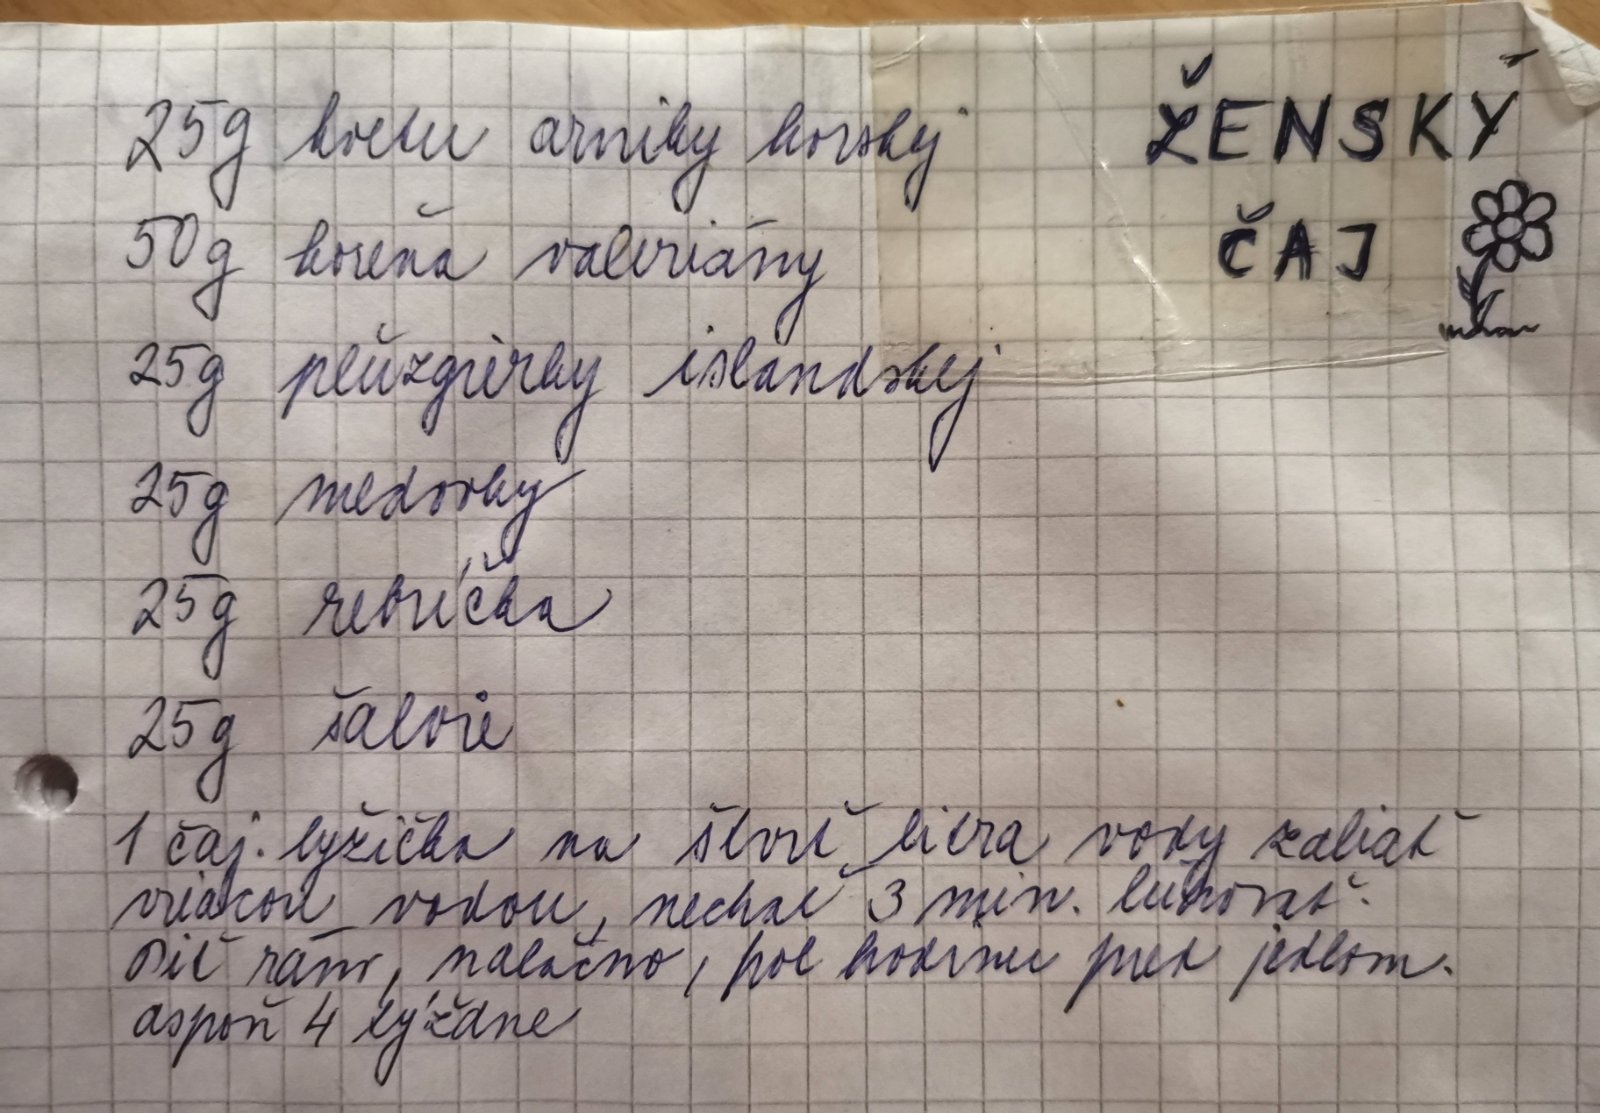 ŽENSKÝ
ČAJ
25g kvetu arniky horskej
50g koreňa valeriány
25g pľuzgierky islandskej
25g medovky
25g rebríčka
25g šalvie
1 čaj. lyžička na štvrť litra vody zaliať
vriacou vodou, nechať 3 min. lúhovať.
Piť ráno, nalačno, pol hodinu pred jedlom.
aspoň 4 týždne